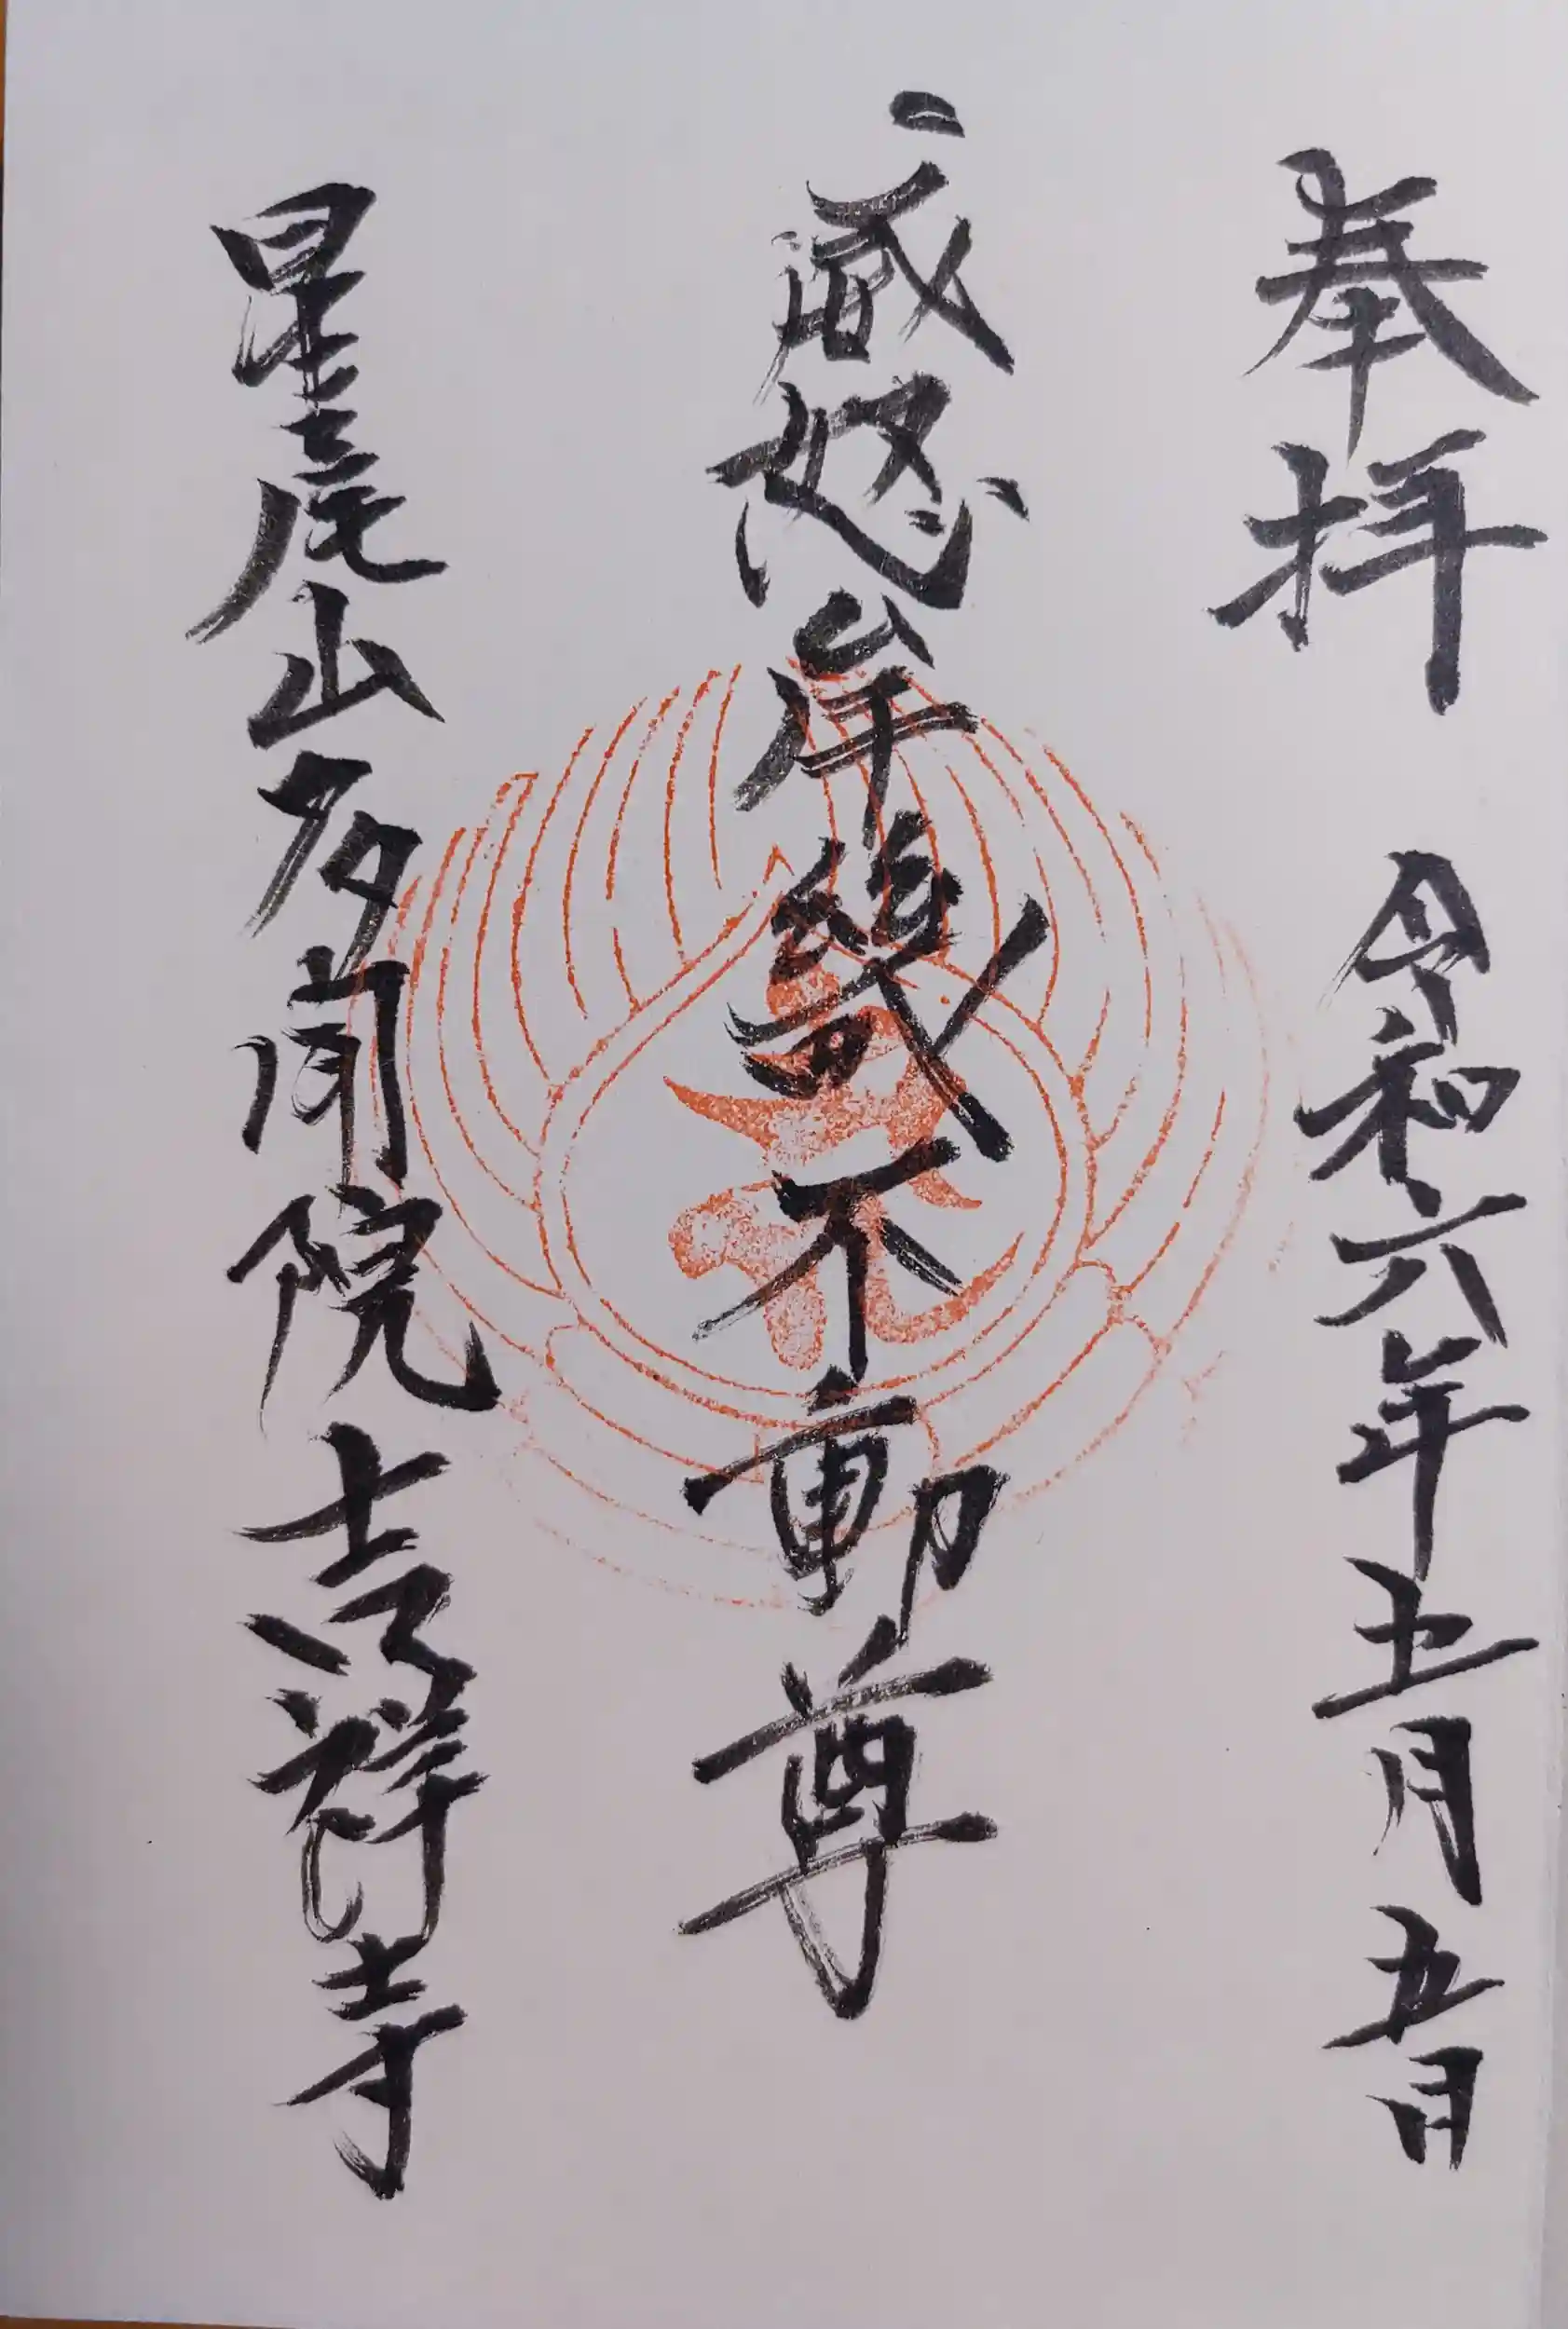 奉拝 令和六年五月五日
威怒牟幾不動尊
星尾山多聞院吉祥寺